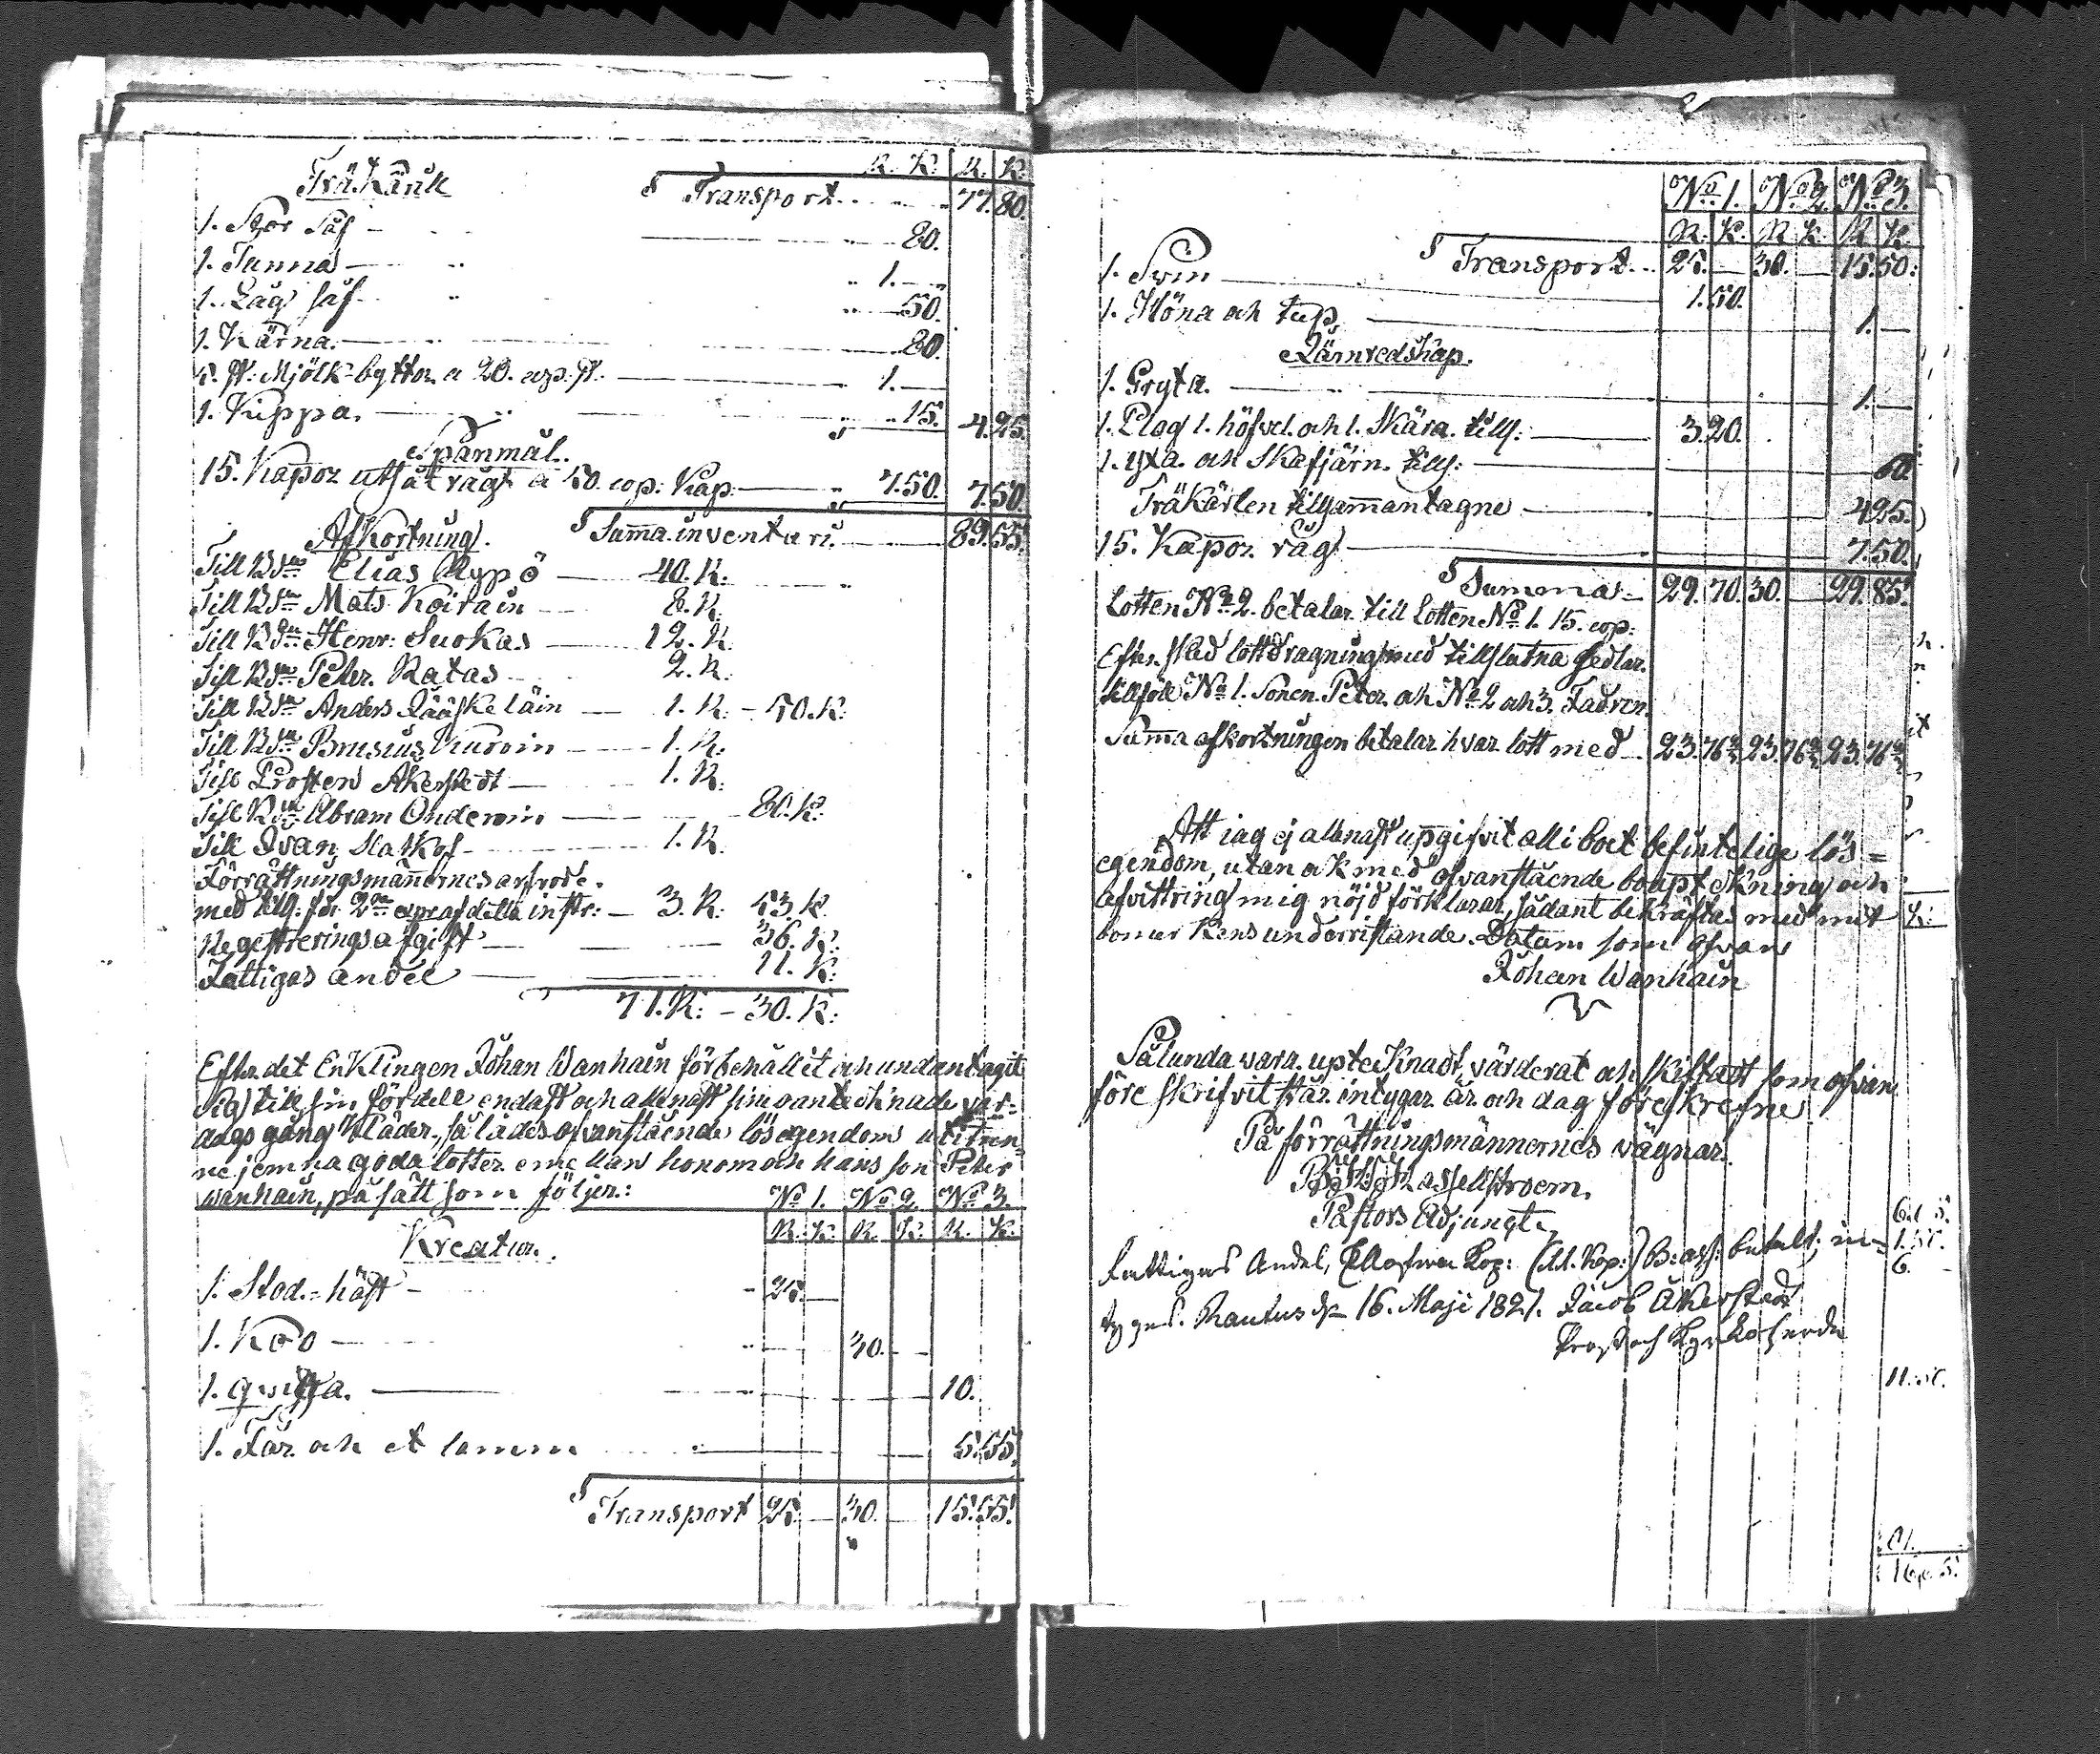 R. K. R. K.
Träkäril
Transport 77. 80.
1. Stor Såf 80.
1. Tunna 1.
1. Låg såf 50.
1. Kärna. 80.
5. st: Mjölk-byttor a 20. cop: st: 1.
1. Kippa. 15. 4. 25.
Spanmål.
15. Kapor utsåt rågt a 50. cop: Kap: 7.50. 7.50.
Afkortning. Summa inventari 89.55.
Till Bdn Elias Rypö 40. R:
Till Bdn Mats Koirain 8. R.
Till Bdn Henr: Suokas 12. R.
Till Bdn Peter Ratas 2. R.
Till Bdn Anders Jääskeläin 1. R: 50. K:
Till Bdn Brusius Kurvin 1. R:
Till Prosten Åkerstedt 1. R:
Till Bdn Abram Onderoin 80. K:
Till Ivan Slatkof 1. R.
Förrättningsmännernes arfvode.
med till: för 2ne expr af detta instr: 3. R: 53. K.
Regestreringsafgift 36. K:
Fattigas andel 11. K:
71. R: 30. K:
Efter det Enklingen Johan Wanhain förbehållit och undantagit
sig till sin fördell endast och allenast sine oantecknade var-
dags gång kläder, så lades ofvanstående lösegendom uti tren-
ne jemna goda lotter emellan honom och hans son Peter
Wanhain, på sätt som följer: No 1. No 2. No 3.
Kreatur. R. K. R. K. R. K.
1. Stod-häst 25.
1. Ko 30.
1. qwiga. 10.
1. Får och et lamm 5.55.
Transport 25. 30. 15.55.
No 1. No 2. No 3.
R. K. R. K. R. K.
Transport 25. 30. 15.50.
1. Svin 1.50.
1. Höna och tup 1.
Järnredskap.
1. Gryta. 1.
1. Plog 1. höfvel och 1. Skära. till: 3.20.
1. yxa. och Skafjärn. till: 60.
Träkärlen tillsammantagne 4.25.
15. Kapor råg 7.50.
Summa 29.70. 30. 29.85.
Lotten No 2. betalar till lotten No 1. 15. cop:
Efter skied lottdragning med tillslutna sedlar
tillföll No 1. Sonen Peter och No 2 och 3. Fadren.
Summa afkortningen betalar hvar lott med 23. 76⅔ 23. 76⅔ 23. 76⅔
Att jag ej allenast upgifvit all i boet befintelige lös-
egendom, utan ock med ofvanstående boupteckning och
afvittring mig nöjd förklarar, sådant bekräftas med mit
bomärkens underristande. Datum som ofvan
Johan Wanhain
Sålunda vara upteknadt, värderat och skiftadt som ofvan
före skrifvit står intygar år och dag föreskrefne
På förrättningsmännernes vägnar
Hassellstroem.
Pastors Adjungt.
Fattigas Andel, Elofva Kop: (11. Kop:) B: ass: betalt, in-
tygas. Rautus d. 16. Maji 1821. Jacob Åkerstedt
Prost och Kyrkoherde
11.